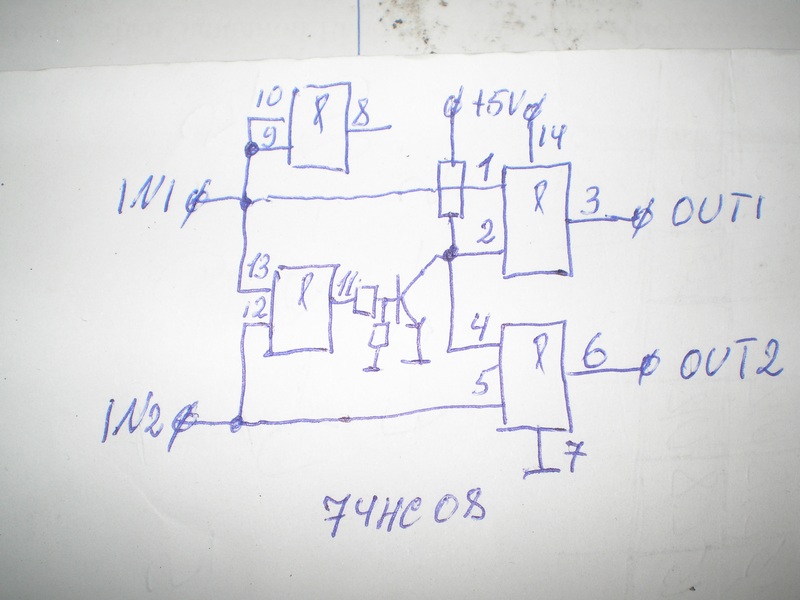 10
&
8
9
+5V
14
IN1
1
&
3
OUT1
2
13
&
11
12
4
&
6
OUT2
5
IN2
7
74HC08